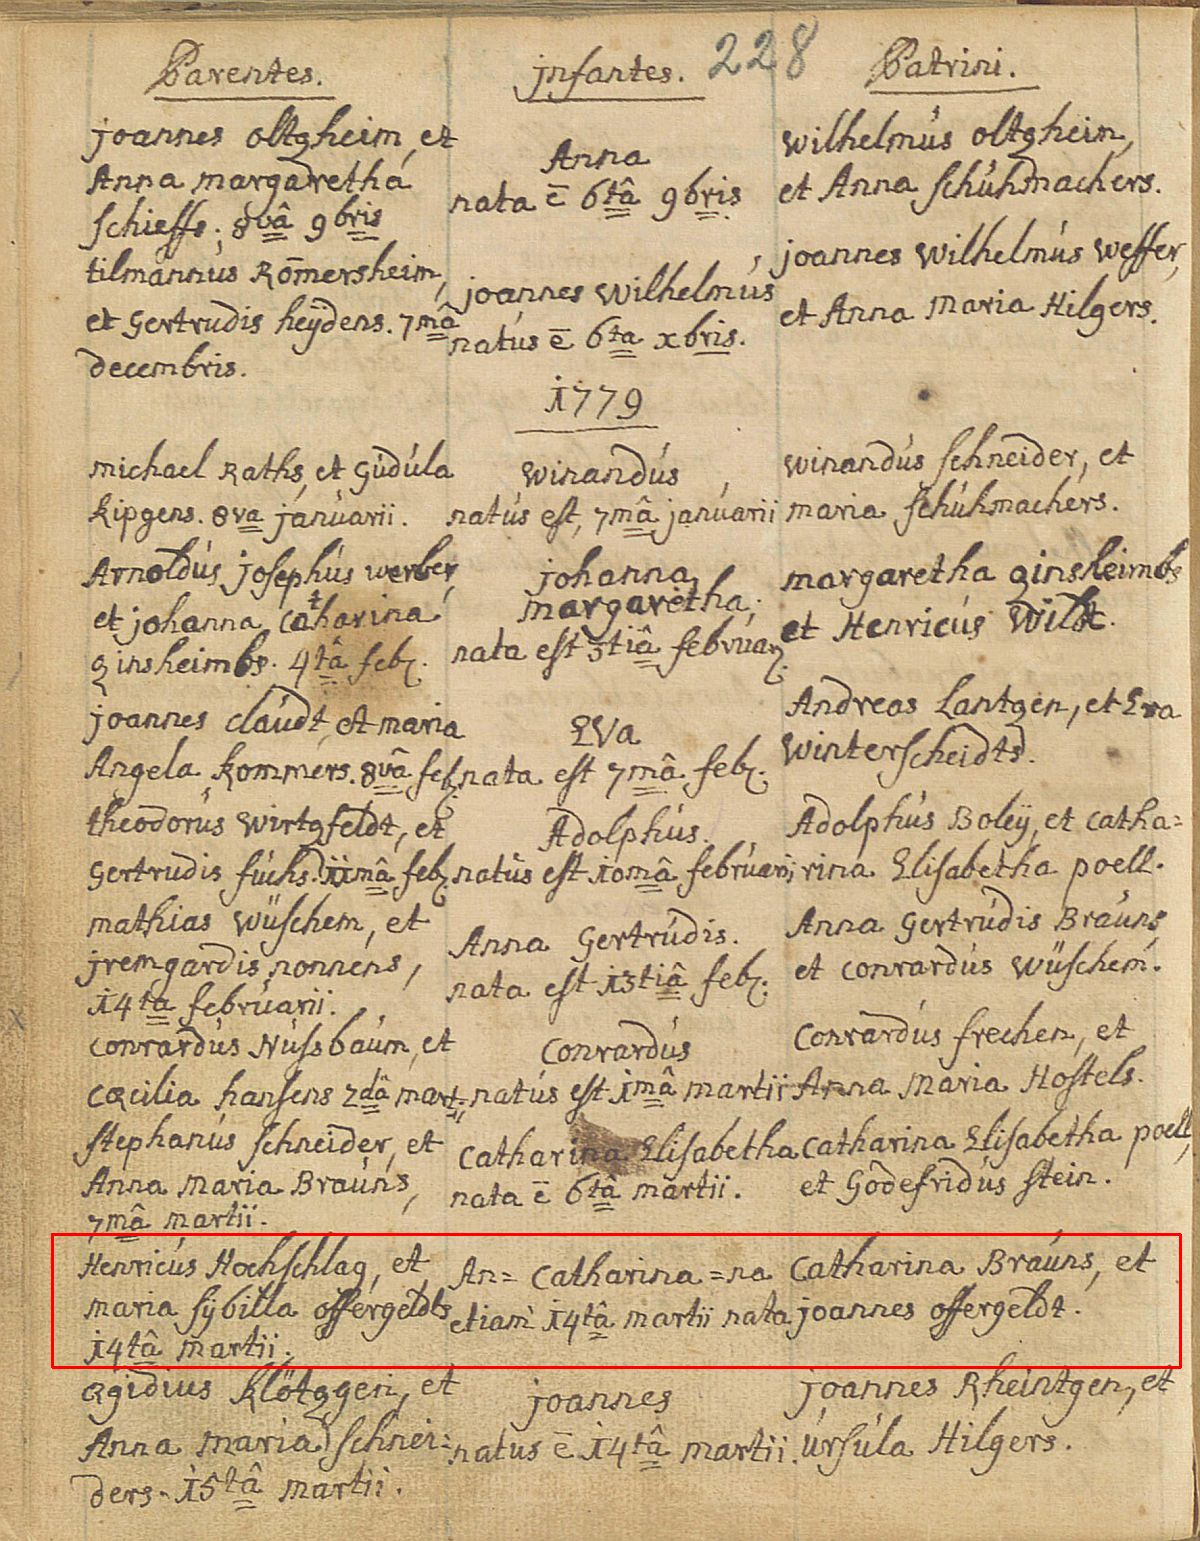 Parentes. jnfantes. 228 Patrini.
joannes oltzheim, et
Anna margaretha
schieffs. 8vâ 9bris
Anna
nata ē 6tâ 9bris
Wilhelmús oltzheim,
et Anna schúhmachers.
tilmannús Römersheim,
et Gertrudis heÿdens. 7mâ
decembris.
joannes Wilhelmús
natús ē 6ta xbris.
joannes Wilhelmús Weffer,
et Anna Maria Hilgers.
1779
michael Raths, et Gúdúla
kipgens. 8va janúarii.
Winandús
natús est, 7mâ janúarii
winandús schneider, et
maria schúhmachers.
Arnoldús josephús werber,
et johanna Catharina
zinsheimbs. 4tâ feb.
johanna
margaretha,
nata est 3tiâ febrúar.
margaretha zinsheimbs
et Henricús Wildt.
joannes claúdt, et maria
Angela kommers. 8vâ feb.
EVa
nata est 7mâ feb.
Andreas Lantzen, et Eva
Winterscheidts.
theodorús Wirtzfeldt, et
Gertrudis fúchs. 11mâ feb.
Adolphús.
natús est 10mâ febrúarii
Adolphús Boleÿ, et Catha=
rina Elisabetha poell.
mathias Wüschem, et
jremgardis nonnens,
14ta febrúarii.
Anna Gertrúdis.
nata est 13tiâ feb.
Anna Gertrúdis Braúns
et Conrardús Wüschem.
Conrardús Nússbaúm, et
Cæcilia hansens 2dâ mart.
Conrardús
natús est 1mâ martii
Conrardús frechen, et
Anna Maria Hostels.
stephanús schneider, et
Anna Maria Braúns,
7mâ martii.
Catharina Elisabetha
nata ē 6tâ martii.
Catharina Elisabetha poell,
et Godefridús stein.
Henricús Hochschlag, et
maria sÿbilla offergeldts
14tâ martii.
An= Catharina =na
etiam 14tâ martii nata
Catharina Braúns, et
joannes offergeldt.
ægidius klötzgen, et
Anna Maria schnei=
ders. 15tâ martii.
joannes
natus ē 14tâ martii.
joannes Rheintgen, et
úrsúla Hilgers.